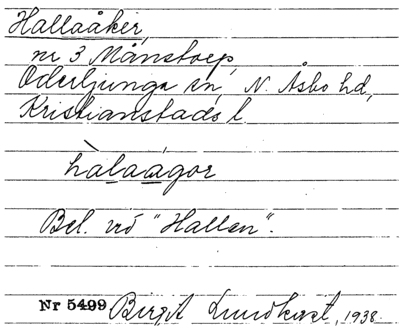 Hallaåker,
nr 3 Månstorp,
Oderljunga sn, N. Åsbo hd,
Kristianstads l.
hàlaágor
Bel. vid "Hallen".
Nr 5499 Birgit Lundkvist, 1938.